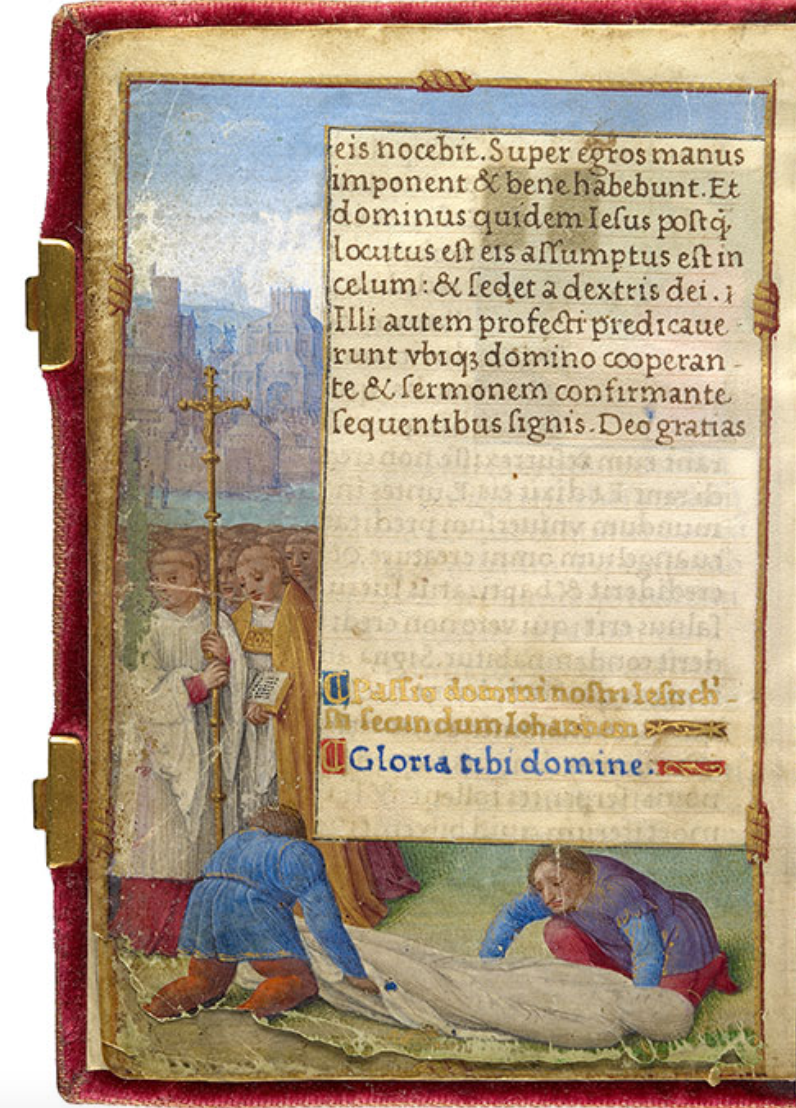 eis nocebit. Super egros manus
imponent & bene habebunt. Et
dominus quidem Ieſus poſtq̃
locutus eſt eis aſſumptus eſt in
celum: & ſedet a dextris dei. ;
Illi autem profecti predicaue
runt vbiqꝫ domino cooperan-
te & ſermonem confirmante
ſequentibus ſignis. Deo gratias
Paſſio domini noſtri Ieſu ch'
ſti ſecundum Iohannem
Gloria tibi domine.